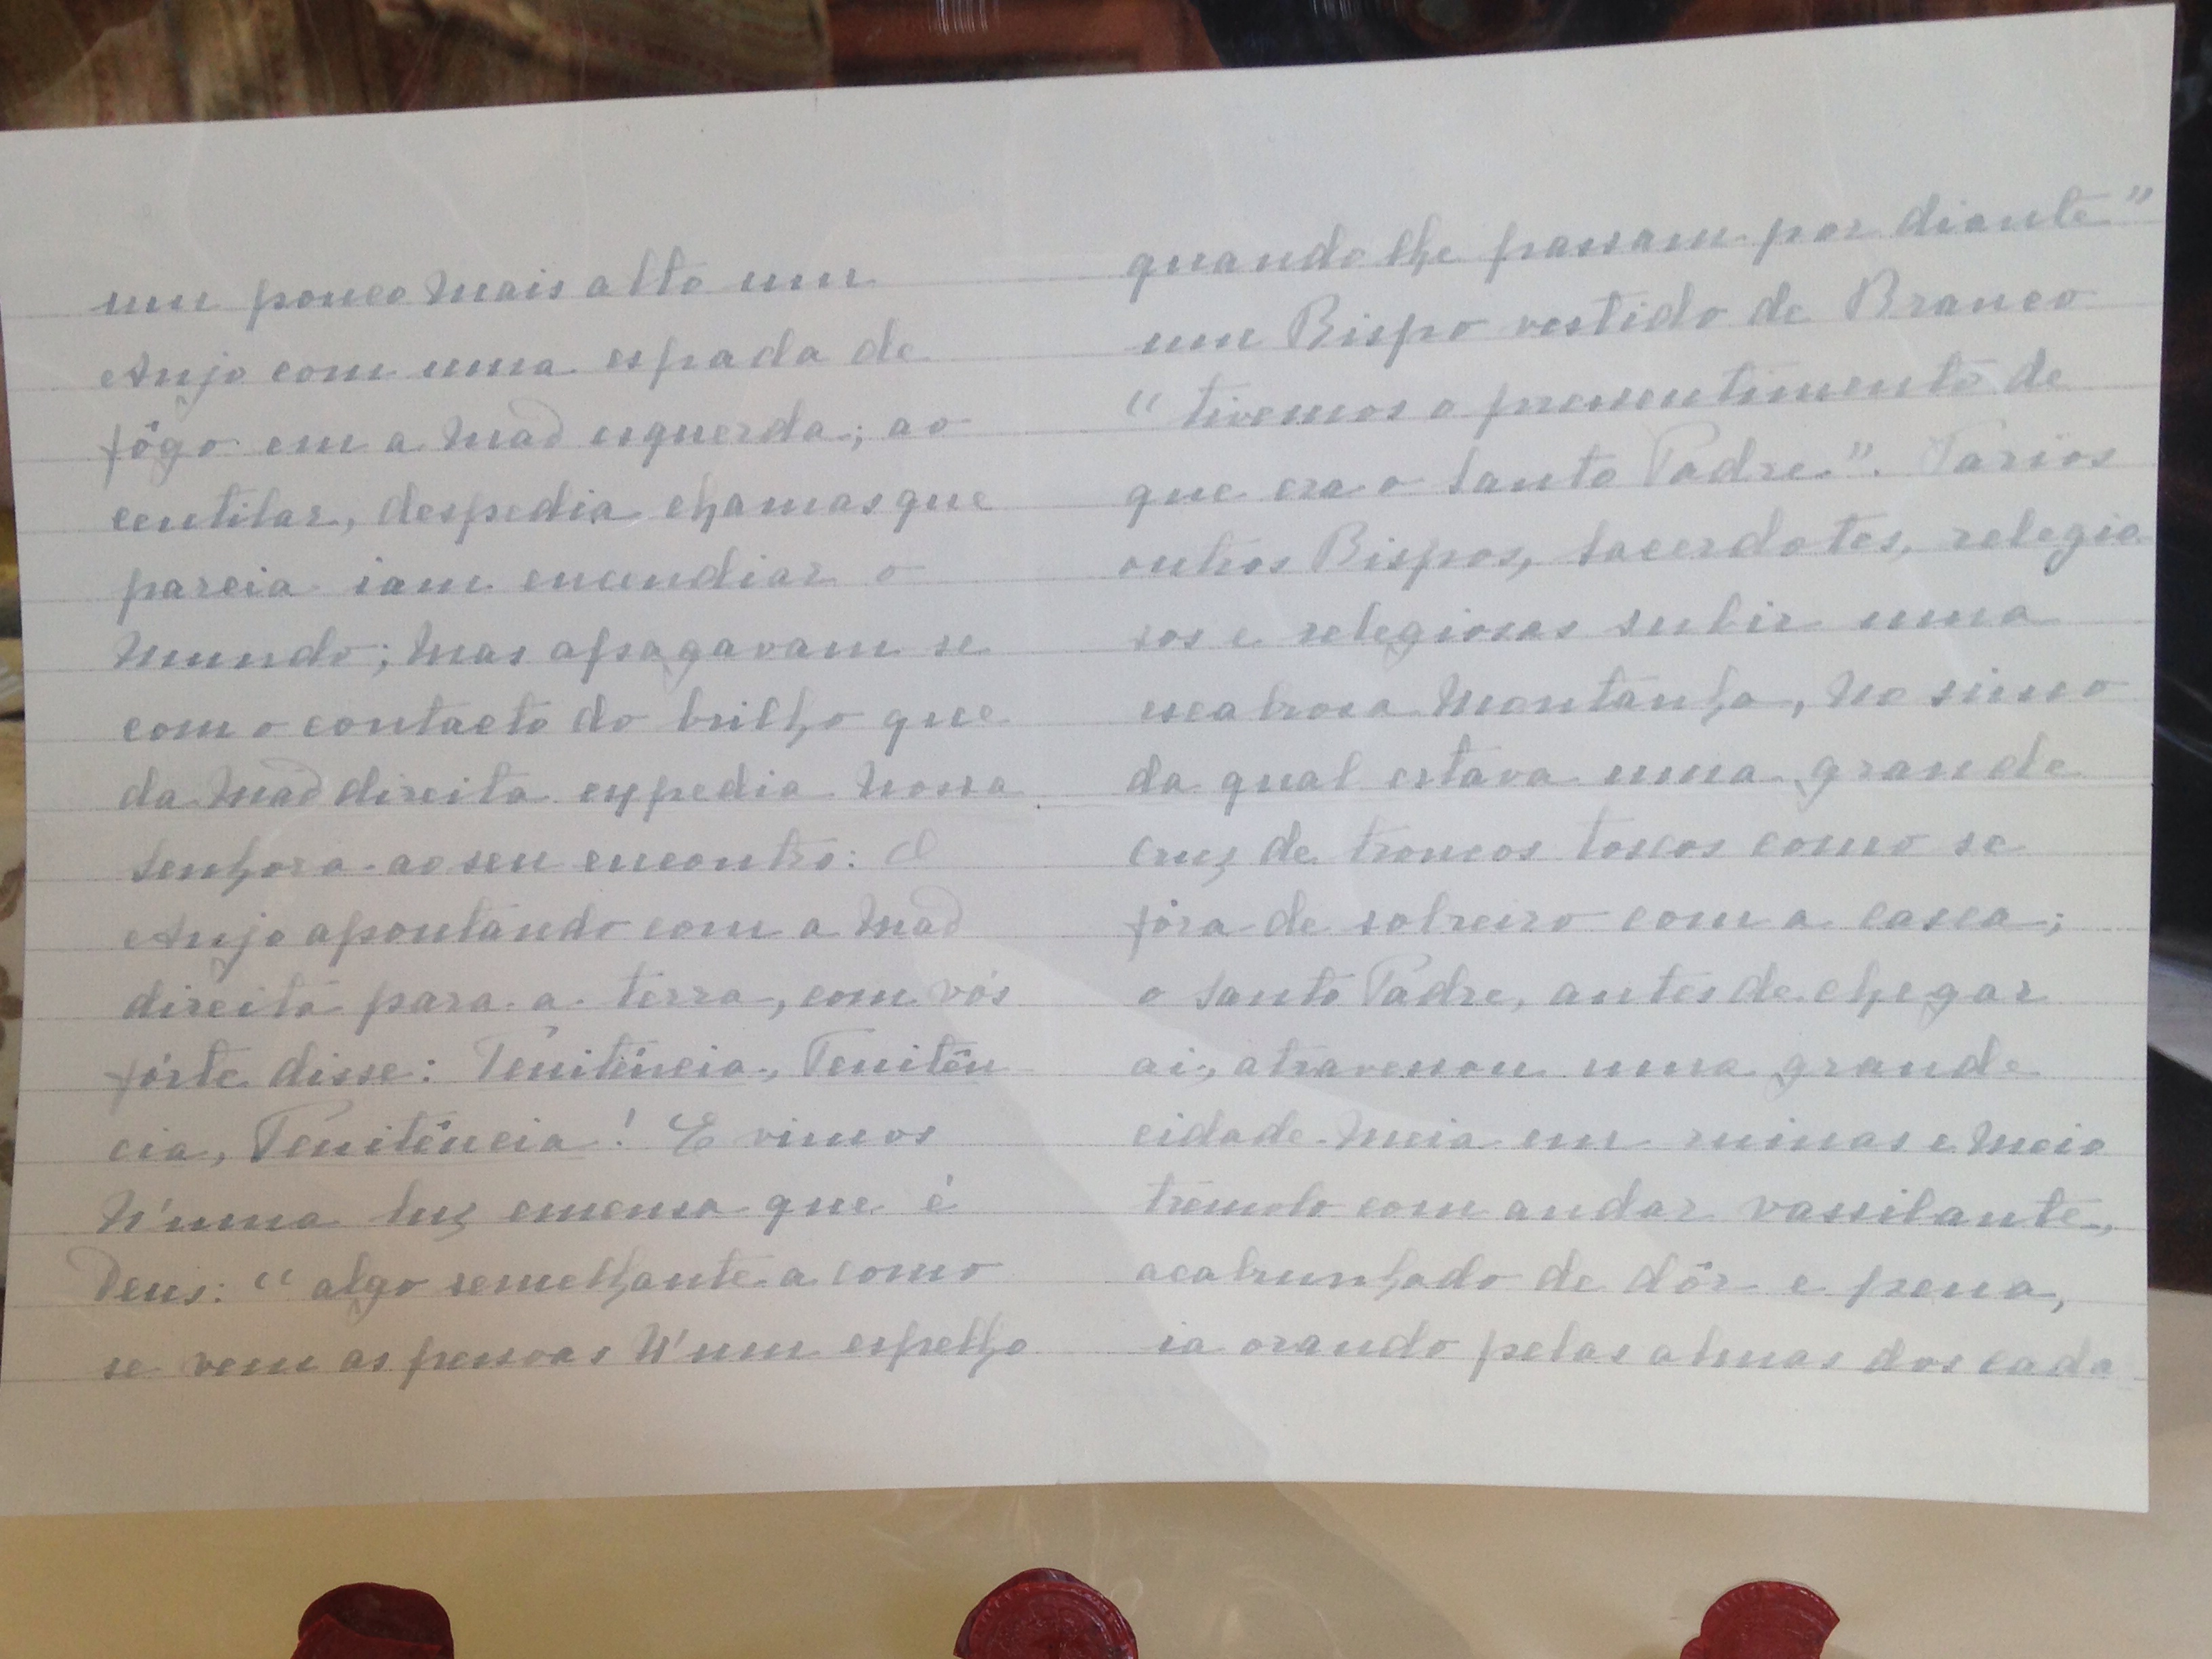 um pouco mais alto um
Anjo com uma espada de
fôgo em a mão esquerda; ao
centilar, despedia chamas que
parcia iam encendiar o
mundo; mas apagavam se
com o contacto do brilho que
da mão direita expedia Nossa
Senhora ao seu encontro: O
Anjo apontando com a mão
direita para a terra, com vós
fórte disse: Penitência, Penitên
cia, Penitência! E vimos
N'uma luz emensa que é
Deus: "algo semelhante a como
se vem as pessoas N'um espelho
quando lhe passam por diante"
um Bispo vestido de Branco
"tivemos o pressentimento de
que era o Santo Padre". Varios
outros Bispos, Sacerdotes, relegio
sos e relegiosas subir uma
escabrosa montanha, no simo
da qual estava uma grande
Cruz de troncos toscos como se
fôra de sobreiro com a casca;
o Santo Padre, antes de chegar
aí, atravessou uma grande
cidade meia em ruinas e meio
trémulo com andar vassilante,
acabrunhado de dôr e pena,
ia orando pelas almas dos cada